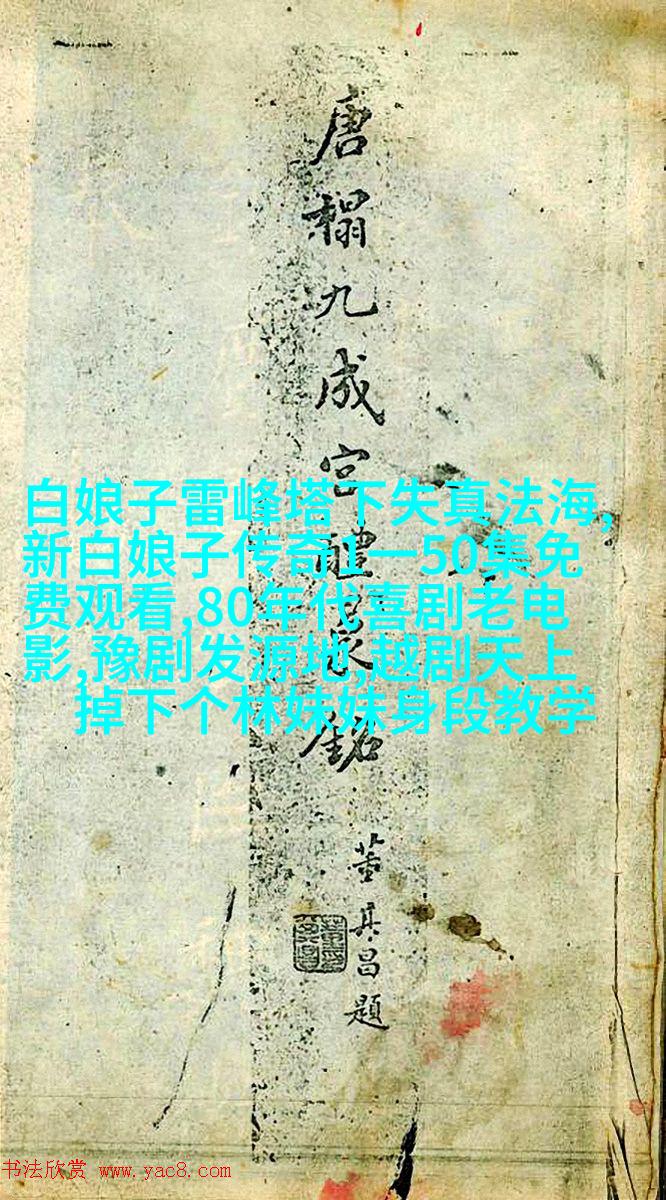 唐榻九成宮醴泉銘
董其昌題
白娘子雷峰塔下失真法海,
新白娘子传奇1一50集免
费观看,80年代喜剧老电
影,豫剧发源地,越剧天上
掉下个林妹妹身段教学
书法欣赏 www.yac8.com